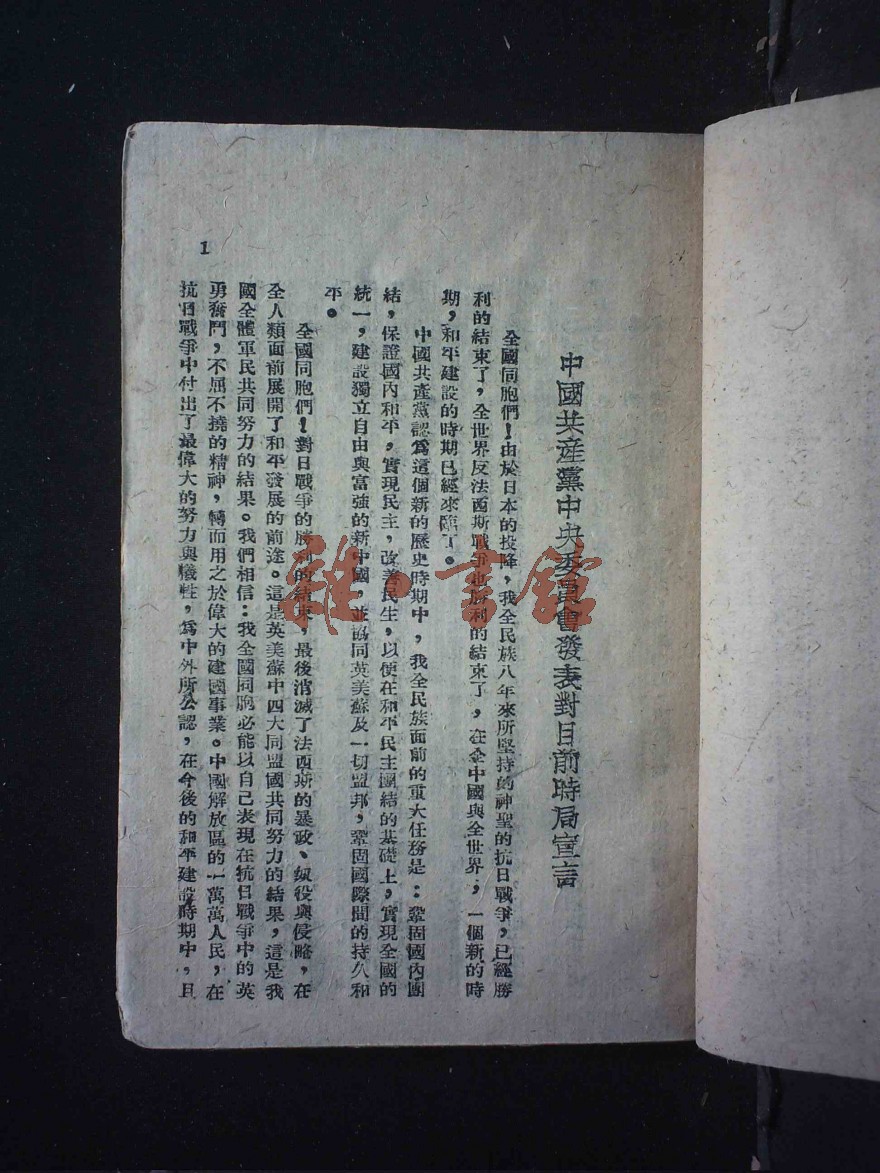 中國共產黨中央委員會發表對目前時局宣言
全國同胞們！由於日本的投降，我全民族八年來所堅持的神聖的抗日戰爭，已經勝
利的結束了，全世界反法西斯戰爭也勝利的結束了，在全中國與全世界，一個新的時
期，和平建設的時期已經來臨了。
中國共產黨認爲這個新的歷史時期中，我全民族面前的重大任務是：鞏固國內團
結，保證國內和平，實現民主，改善民生，以便在和平民主團結的基礎上，實現全國的
統一，建設獨立自由與富強的新中國，並協同英美蘇及一切盟邦，鞏固國際間的持久和
平。
全國同胞們！對日戰爭的勝利的結束，最後消滅了法西斯的暴政、奴役與侵略，在
全人類面前展開了和平發展的前途。這是英美蘇中四大同盟國共同努力的結果，這是我
國全體軍民共同努力的結果。我們相信：我全國同胞必能以自己表現在抗日戰爭中的英
勇奮鬥，不屈不撓的精神，轉而用之於偉大的建國事業。中國解放區的一萬萬人民，在
抗日戰爭中付出了最偉大的努力與犧牲，爲中外所公認，在今後的和平建設時期中，且
1
雅·書館